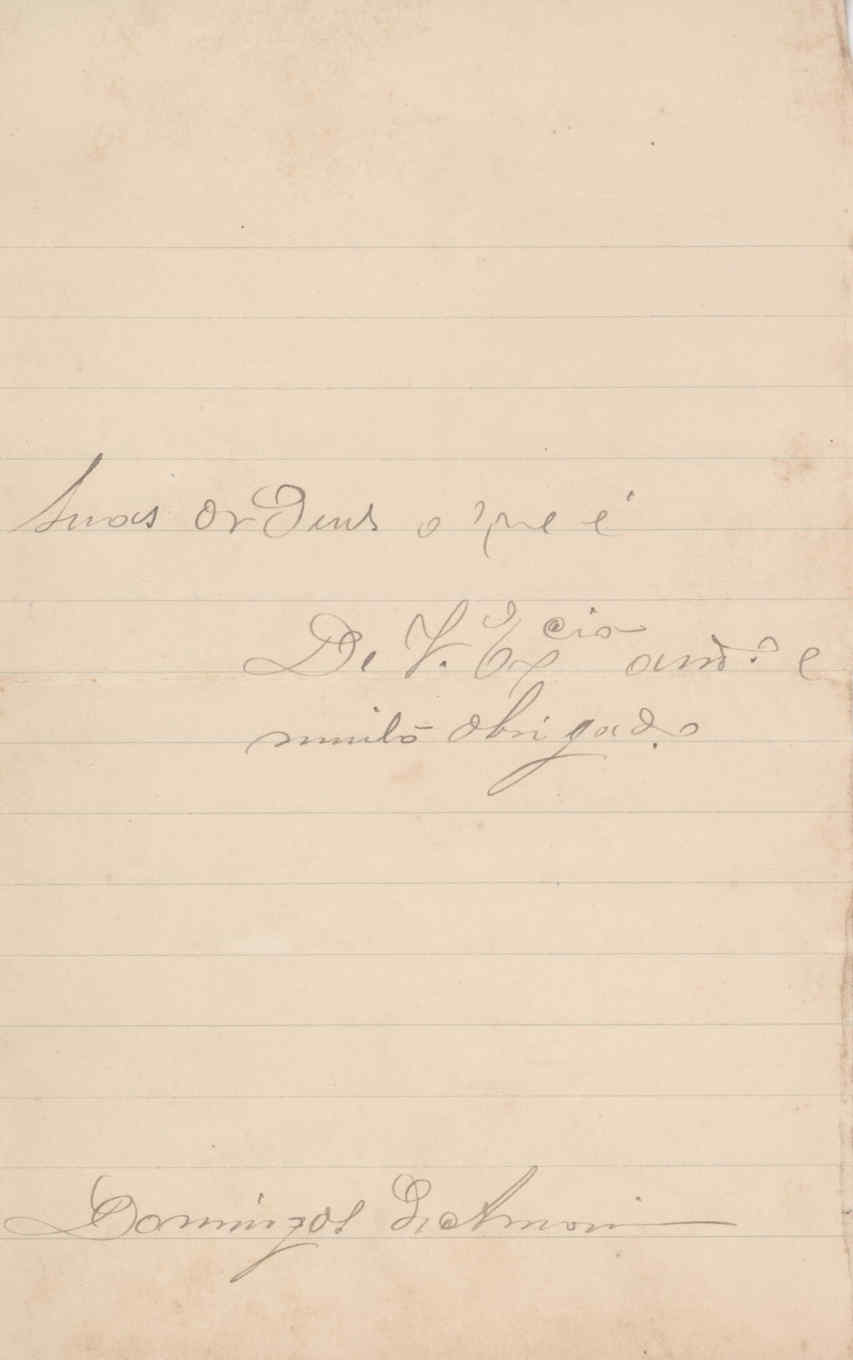 suas ordens o que é
De V. Ex.cia am.º e
muito obrigado
Domingos